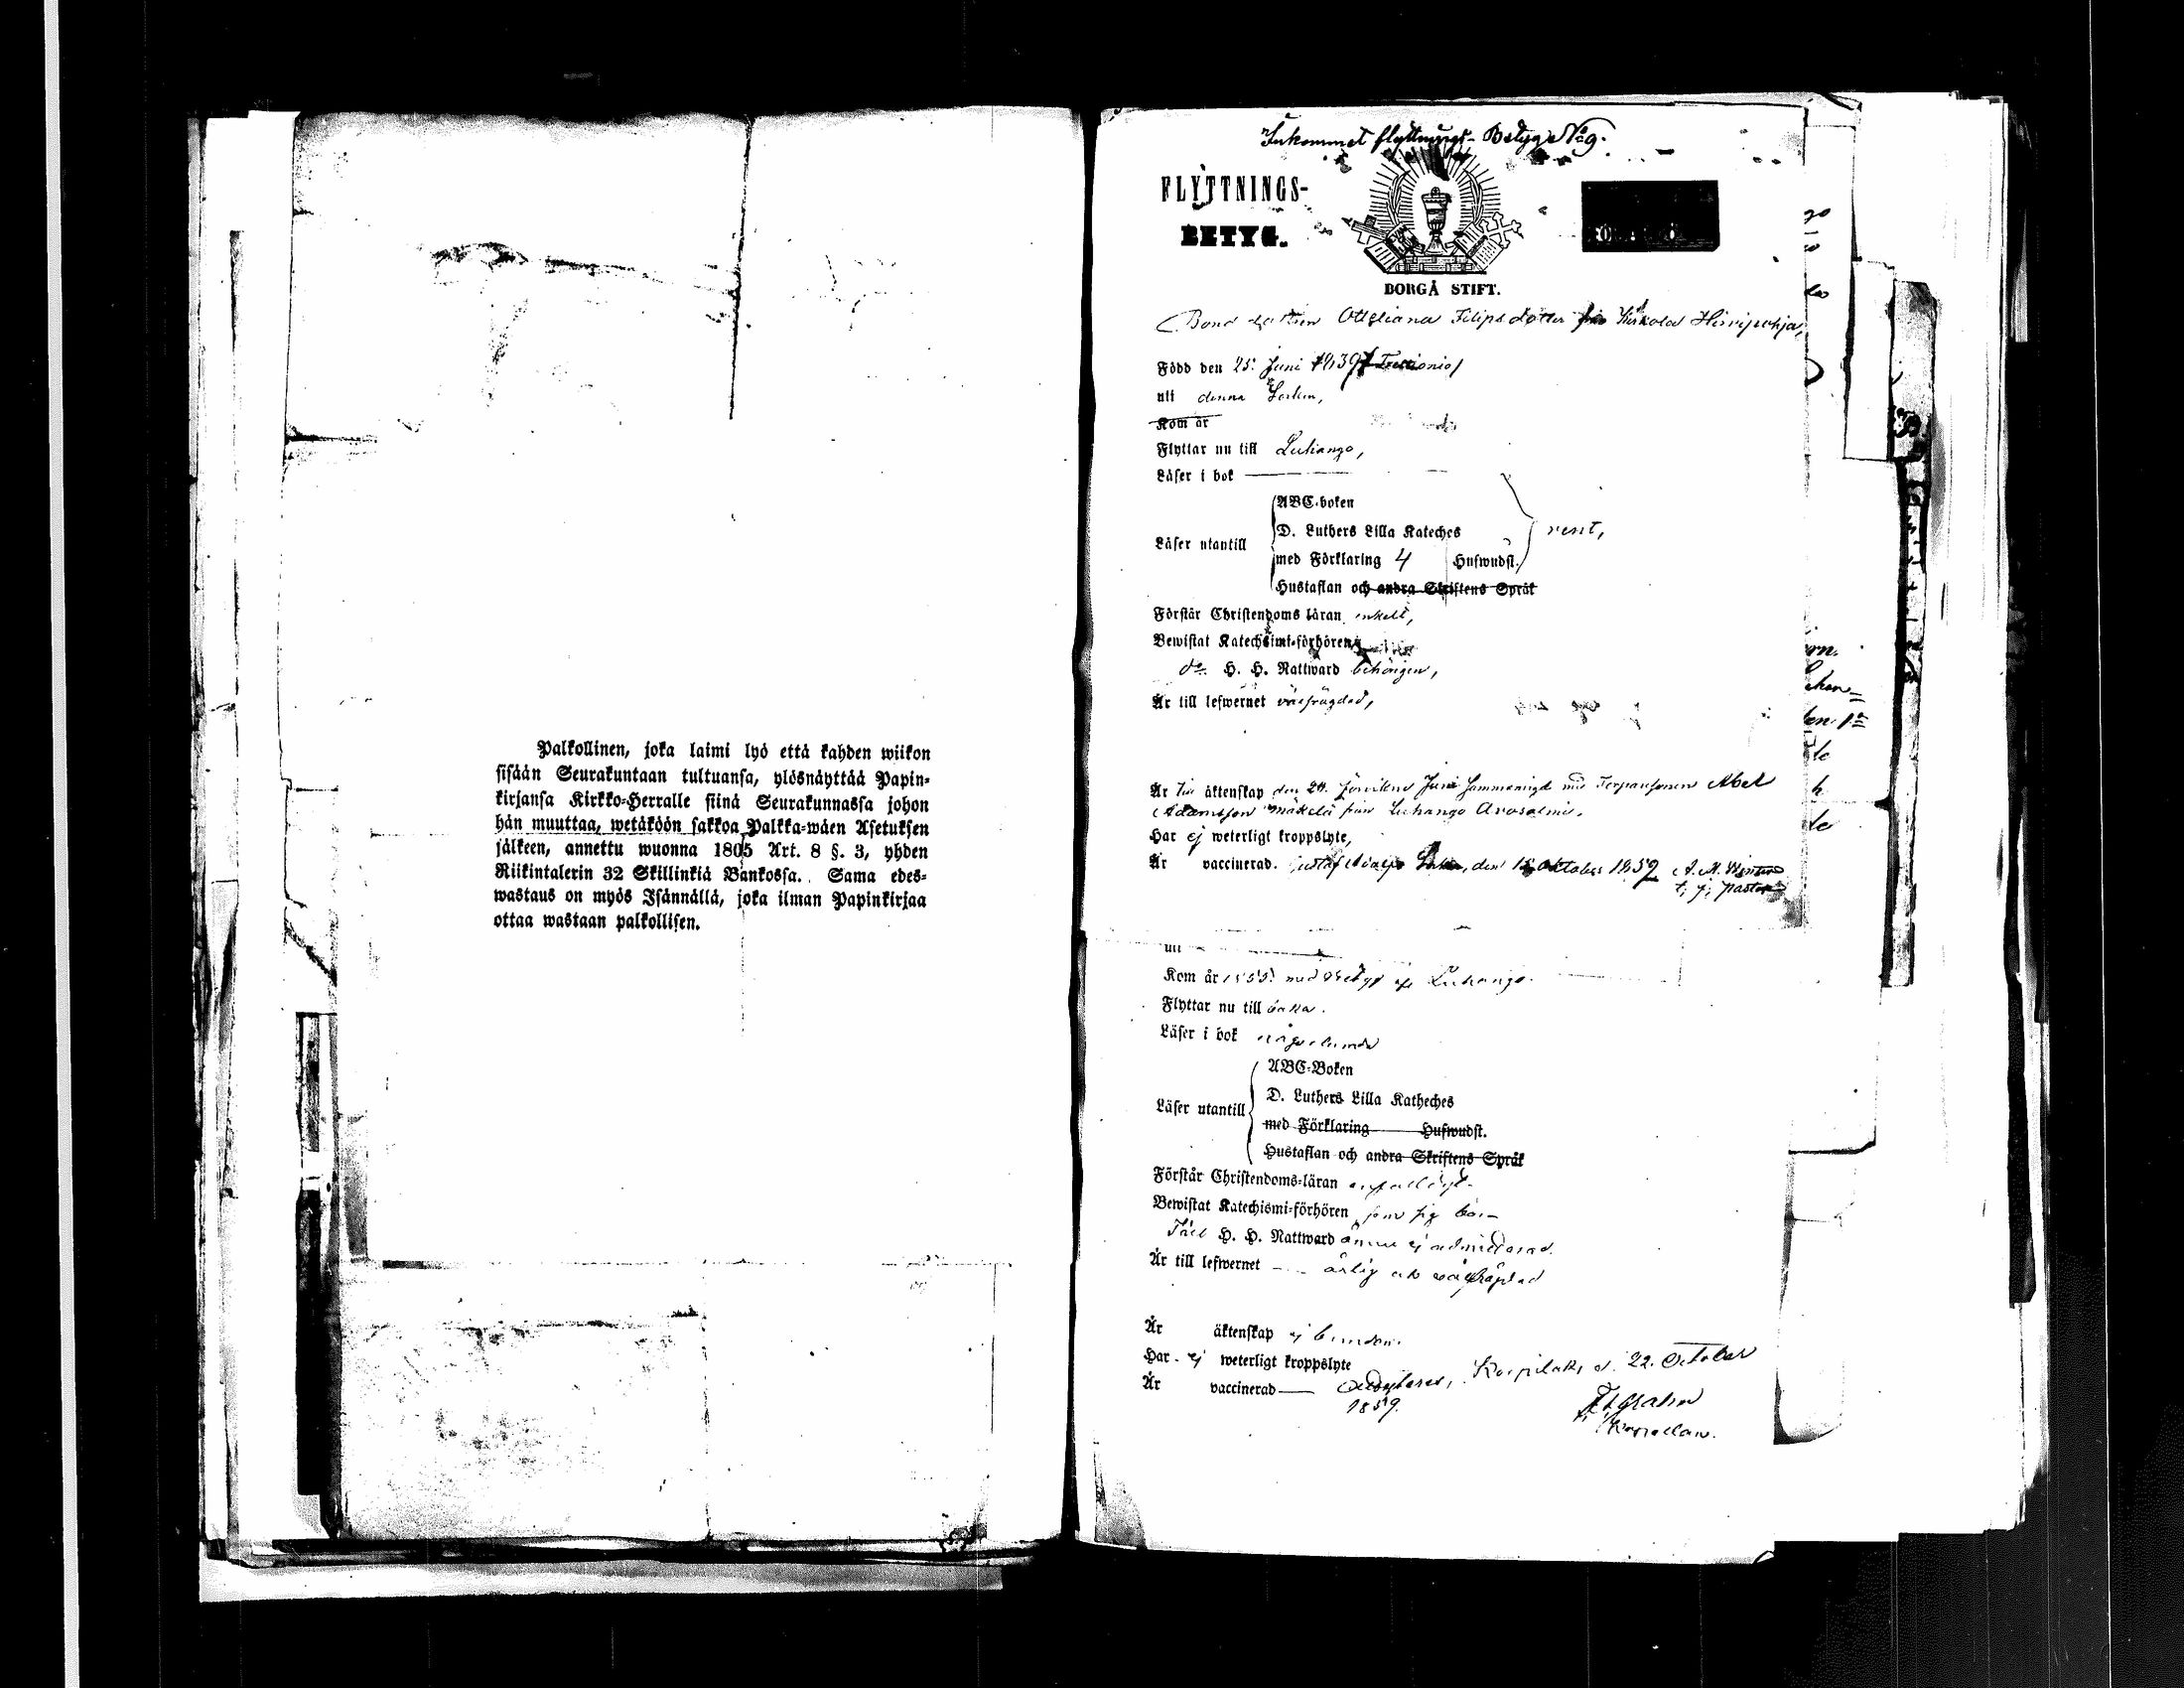 Palkollinen, joka laimi lyö että kahden wiikon
sisään Seurakuntaan tultuansa, ylösnäyttää Papin-
kirjansa Kirkko-Herralle siinä Seurakunnassa johon
hän muuttaa, wetäköön sakkoa Palkka-wäen Asetuksen
jälkeen, annettu wuonna 1805 Art. 8 §. 3, yhden
Riikintalerin 32 Skillinkiä Bankossa. Sama edes-
wastaus on myös Isännällä, joka ilman Papinkirjaa
ottaa wastaan palkollisen.
Inkommet flyttnings-Betyg No 9.
FLYTTNINGS-
BETYG.
BORGÅ STIFT.
Bond dottren Ottiliana Filipsdotter från Hirvipohja,
Född den 25. Juni 1839
uti denna Socken,
Kom år
Flyttar nu till Luhango,
Läser i bok
Läser utantill
ABC-boken
D. Luthers Lilla Kateches
med Förklaring 4 Hufwudst.
Hustaflan och andra Skriftens Språk
rent,
Förstår Christendoms läran enkelt,
Bewistat Katechismi-förhören
do H. H. Nattward behörigen,
Är till lefwernet välfrägdad,
Är till äktenskap den 24. Juni med Abel
Adamsson Mäkelä från Luhango Avosalmi.
Har ej weterligt kroppslyte,
Är vaccinerad. Gustaf Adolfs den Oktober 1859
t. j. pastor
uti
Kom år 1855 med Betyg af Luhango.
Flyttar nu till baka.
Läser i bok någorlunda
Läser utantill
ABC-Boken
D. Luthers Lilla Katheches
med Förklaring Hufwudst.
Hustaflan och andra Skriftens Språk
Förstår Christendoms-läran
Bewistat Katechismi-förhören som sig bör
Till H. H. Nattward ännu ej admitterad.
Är till lefwernet ärlig och välfrägdad
Är äktenskap ej bunden.
Har ej weterligt kroppslyte
Är vaccinerad Korpilaks, d. 22. October
1859.
Grahn
Kapellan.